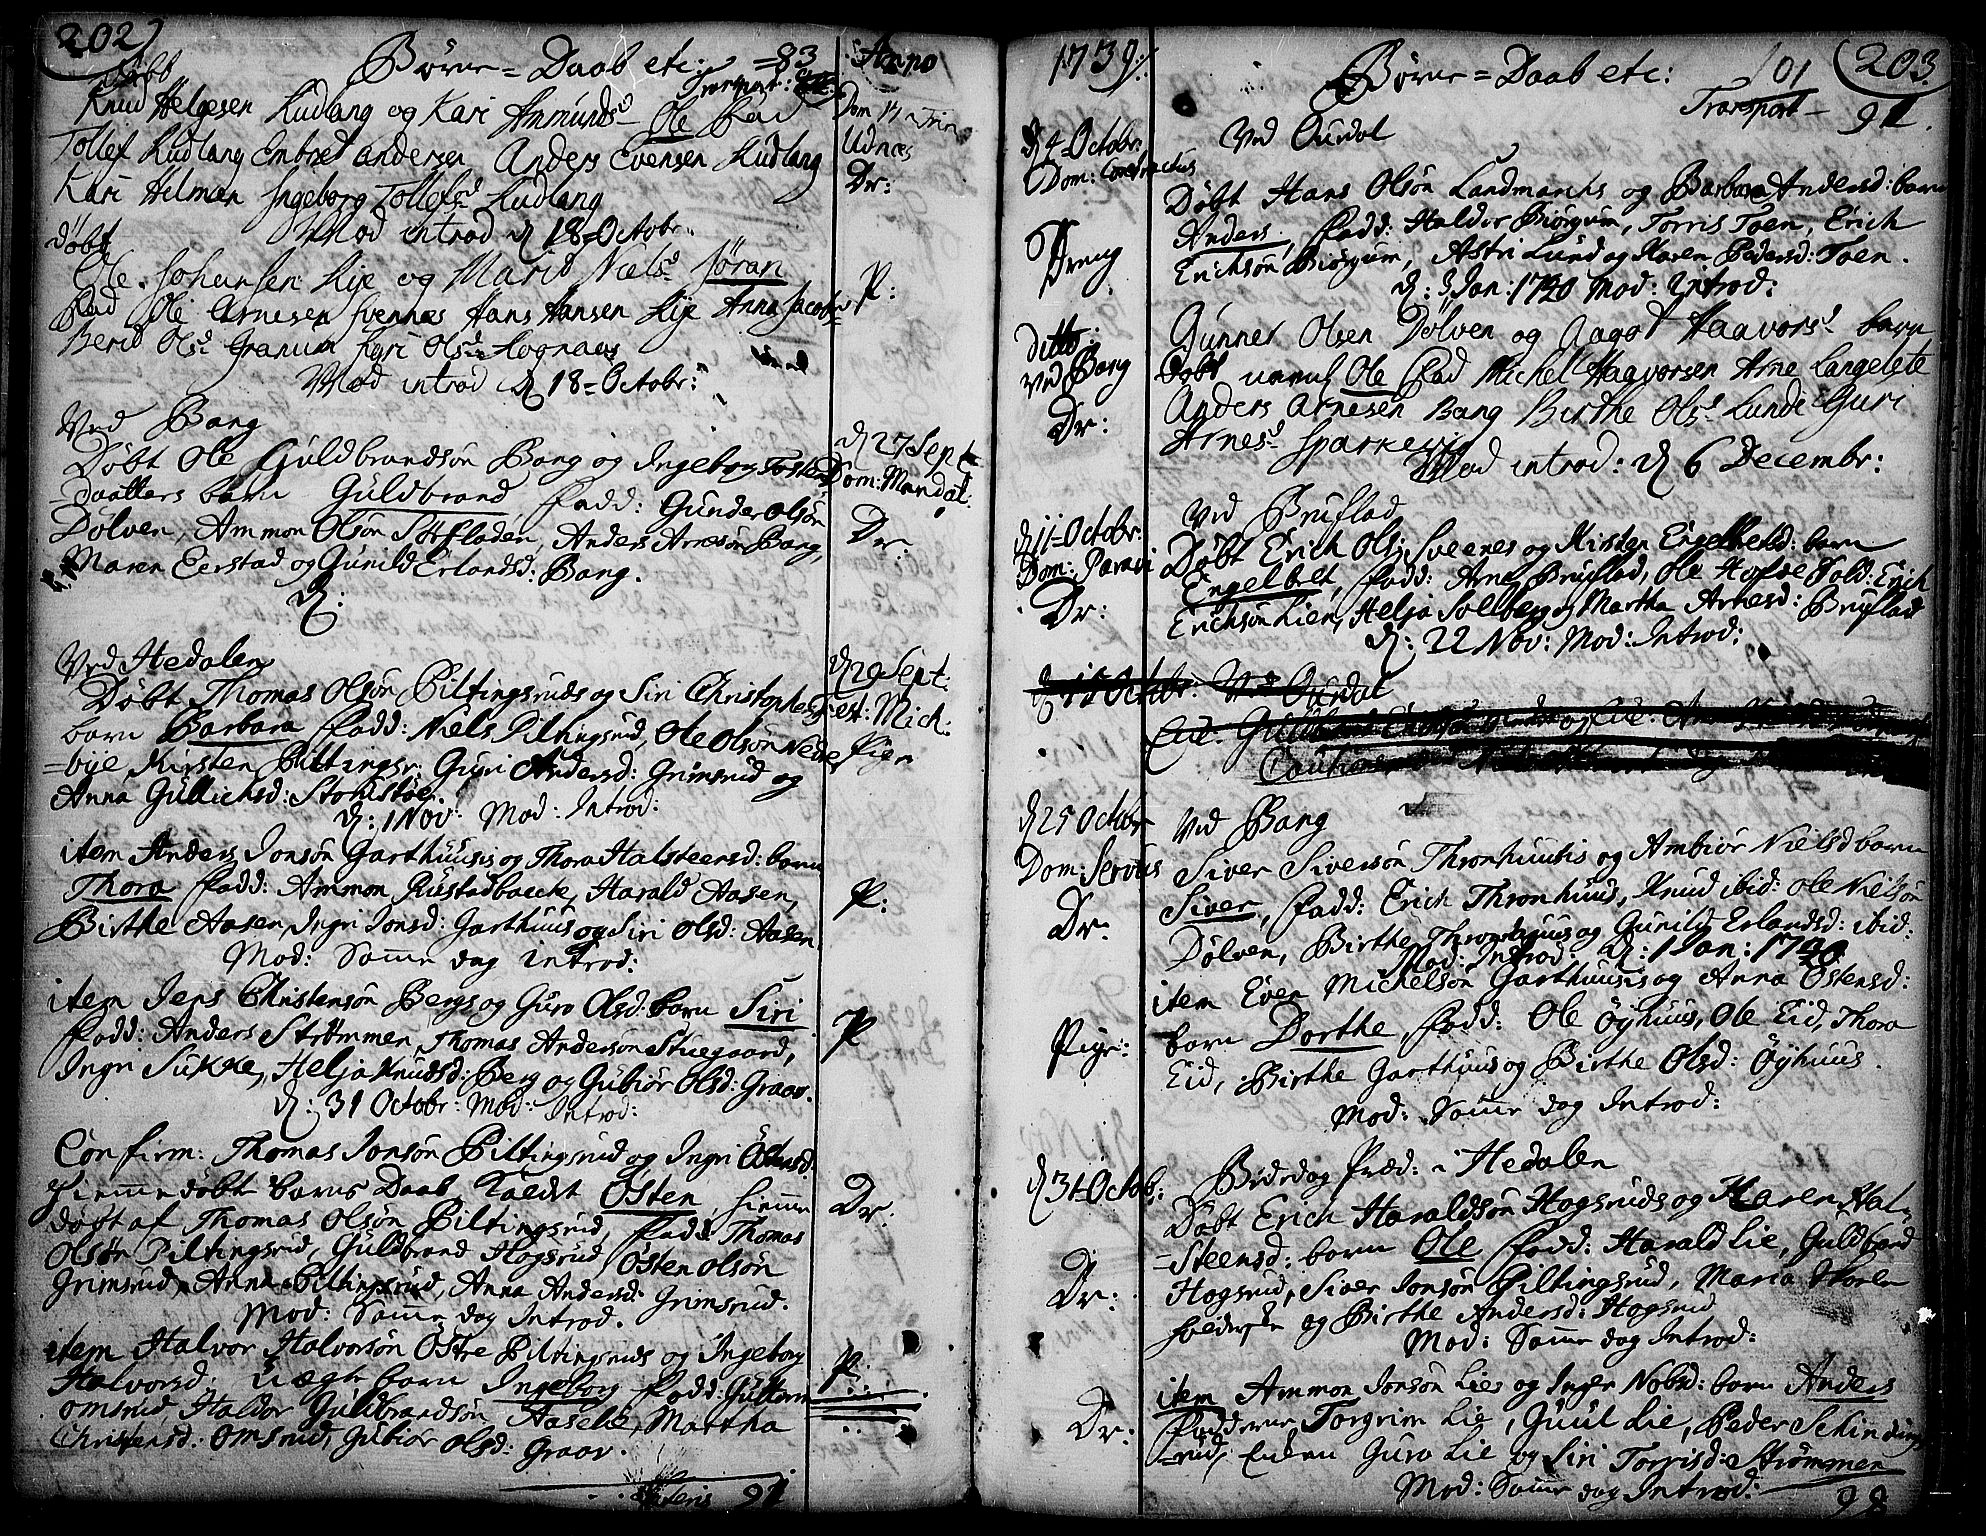 202)
Børne=Daab etc: =83
Anno
Transport:
Døbt
Knud Helgesen Ludlang og Kari Amundsd Ole Fad
Dom 17 Trin
Tollef Ludlang Embret andersen Anders Evensen Ludlang
Udnæs
Kari Hilmen Ingeborg Tollefsd Ludlang
Dr:
Mod introd d 18 Octobr:
døbt
Ole Johansen Lije og Marit Nielsd Jøran
P:
Fad Ole Arnesen Svennæs Hans Hansen Lije Anna Jacobsd
Berid Olsd Granum Kyri Olsd Fognaas
Mod introd d 18 Octobr:
Ved Bang
d 27 Sept
Døbt Ole Guldbrandsøn Bang og Ingeborg
Dom: Mandat:
=daatters barn Guldbrand, Fadd: Gunder Olsøn
Dølven, Ammon Olsøn Sørfladen, Anders Arnesøn Bang,
Dr:
Maren Eerstad og Gunild Erlandsd: Bang.
d:
Ved Hedalen
d 29 Sept:
Døbt Thomas Olsøn Piltingsruds og Siri Christophersd
Fest: Mich:
barn Barbara Fadd: Niels Piltingsrud, Ole Olsøn Nede
Pige
=bye, Kirsten Piltingsr: Guri Andersd: Grimsrud og
Anna Gullichsd: Storstøe.
d: 1 Nov: Mod: Introd:
item Anders Jonsøn Garthuusis og Thora Halsteensd: barn
Thora Fadd: Ammon Rustadbacke, Harald Aasen,
P:
Birthe Aasen, Ingri Jonsd: Garthuus og Siri Olsd: Aasen
Mod: Samme dag introd:
item Jens Christensøn Bergs og Guro Olsd: barn Siri
Fadd: Anders Strømmen, Thomas Andersøn Stuegaard,
P
Ingri Sukke, Helja Knudsd: Berg og Gubiør Olsd: Graov.
d: 31 Octobr: Mod: Introd:
Confirm: Thomas Jonsøn Piltingsrud og Ingri Østensd:
hiemmedøbt barns Daab Kaldet Østen, hiemme
Dr:
døbt af Thomas Olsøn Piltingsrud, Fadd: Thomas
Olsøn Piltingsrud, Guldbrand Hogsrud, Østen Olsøn
Grimsrud, Anna Piltingsrud, Anna Andersd: Grimsrud.
Mod: Samme dag Introd.
item Halvor Halvorsøn Østre Piltingsruds og Ingeborg
Halvorsd: uægte barn Ingeborg Fadd: Guttorm
P:
Omsrud, Haldor Guldbrandsøn, Aaselie, Martha
Christensd: Omsrud, Gubiør Olsd: Graov.
Lateris 91
1739:
Børne=Daab etc:
101
(203
Transport - 91.
d 4 Octobr:
Ved Ourdal
Dom: Contractus
Døbt Hans Olsøn Landmarchs og Barbara Andersd: barn
Anders, Fadd: Haldor Biørgum, Torris Toen, Erich
Dreng
Erichsøn Biørgum, Astri Lund og Karen Pedersd: Toen.
d: 3 Jan: 1740 Mod: Introd:
Ditto:
Gunner Olsen Dølven og Aagot Haavorsd barn
ved Bang
Døbt navnl Ole Fad Michel Haavorsen Arne Langelete
Dr:
Anders Arnesen Bang Birthe Olsd Lunde Guri
Arnesd Sparkevig
Mod introd: d 6 Decembr:
Ved Bruflad
d 11 Octobr:
Døbt Erich Ols: Sveenes og Kirsten Engelbretsd: barn
Dom: Paravi
Engelbret, Fadd: Arne Bruflad, Ole Hofde Sold: Erich
Dr:
Erichsøn Lien, Helja Sollberg og Martha Arnesd: Bruflad
d: 22 Nov: Mod: Introd:
d 18 Octobr: Ved Ourdal
d 25 Octobr
Ved Bang
Dom: Servus
Siver Siversøn Thronhuutis og Ambiør Nielsd barn
Dr.
Siver, Fadd: Erich Thronhuus, Knud ibid: Ole Nielsøn
Dølven, Birthe Thronhuus og Gunild Erlandsd: ibid:
Mod: Introd: d: 1 Jan: 1740
item Even Michelsøn Garthuusis og Anna Østensd:
Pige:
barn Dorthe, Fadd: Ole Øyhuus, Ole Eid, Thora
Eid, Birthe Garthuus og Birthe Olsd: Øyhuus.
Mod: Samme dag Introd:
d 31 Octob:
Bededag Præd: i Hedalen
Døbt Erich Haraldsøn Hogsruds og Karen Hal-
=Steensd: barn Ole Fadd: Harald Lie, Guldbrand
Dr:
Hogsrud, Siver Jonsøn Piltingsrud, Maria
og Birthe Andersd: Hogsrud
Mod: Samme dag Introd:
item Ammon Jonsøn Lies og Inger Nobsd: barn Anders
Dr:
Faddere Torgrim Lie, Guul Lie, Peder Schinding=
=rud, Guro Lie og Siri Torrisd: Strømmen
Mod: Samme dag Introd:
98